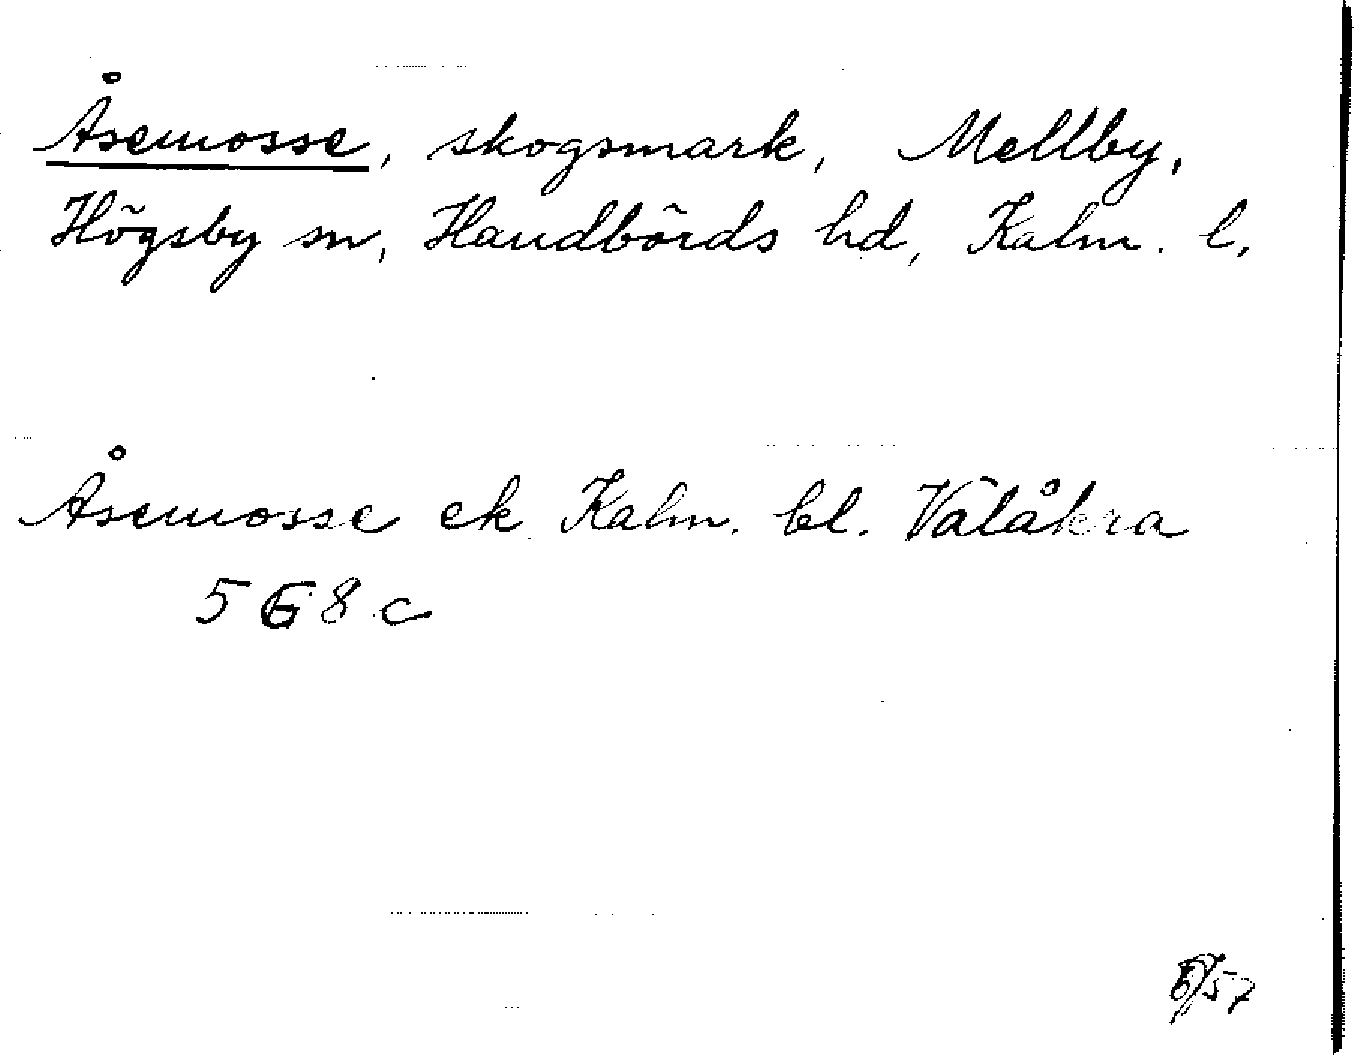 Åsemosse, skogsmark, Mellby,
Högsby sn, Handbörds hd, Kalm. l.
Åsemosse ek Kalm. bl. Välåkra
5 G 8 c